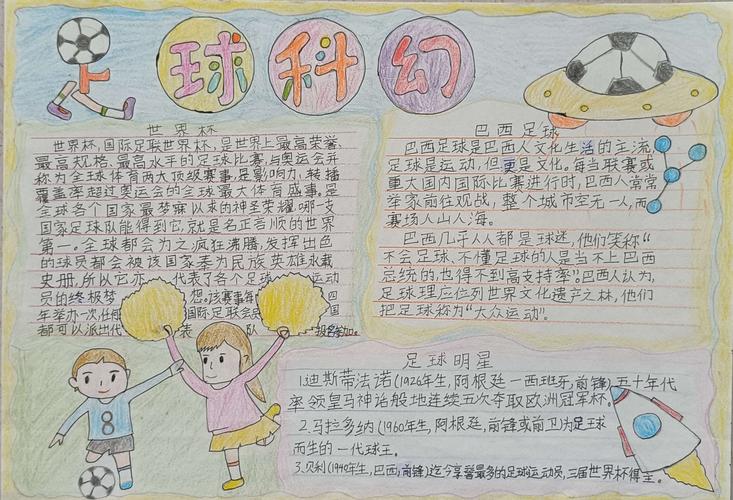 足球科幻
世界杯
世界杯,国际足联世界杯,是世界上最高荣誉、
最高规格、最高水平的足球比赛,与奥运会并
称为全球体育两大顶级赛事,是影响力、转播
覆盖率超过奥运会的全球最大体育盛事,是
全球各个国家最梦寐以求的神圣荣耀,哪一支
国家足球队能得到它,就是名正言顺的世界
第一。全球都会为之疯狂沸腾,发挥出色
的球员都会被该国家奉为民族英雄永载
史册,所以它亦代表了各个足球运动
员的终极梦想。该赛事每四
年举办一次,任何国际足联会员
都可以派出代表队报名参加。
巴西足球
巴西足球是巴西人文化生活的主流,
足球是运动,但更是文化。每当联赛或
重大国内国际比赛进行时,巴西人常常
举家前往观战,整个城市空无一人,而
赛场人山人海。
巴西几乎人人都是球迷,他们笑称“
不会足球、不懂足球的人是当不上巴西
总统的,也得不到高支持率”。巴西人认为,
足球理应位列世界文化遗产之林,他们
把足球称为“大众运动”。
足球明星
1.迪斯蒂法诺(1926年生,阿根廷—西班牙,前锋)五十年代
率领皇马神话般地连续五次夺取欧洲冠军杯。
2.马拉多纳(1960年生,阿根廷,前锋或前卫)为足球
而生的一代球王。
3.贝利(1940年生,巴西,前锋)迄今享誉最多的足球运动员,三届世界杯得主。
8